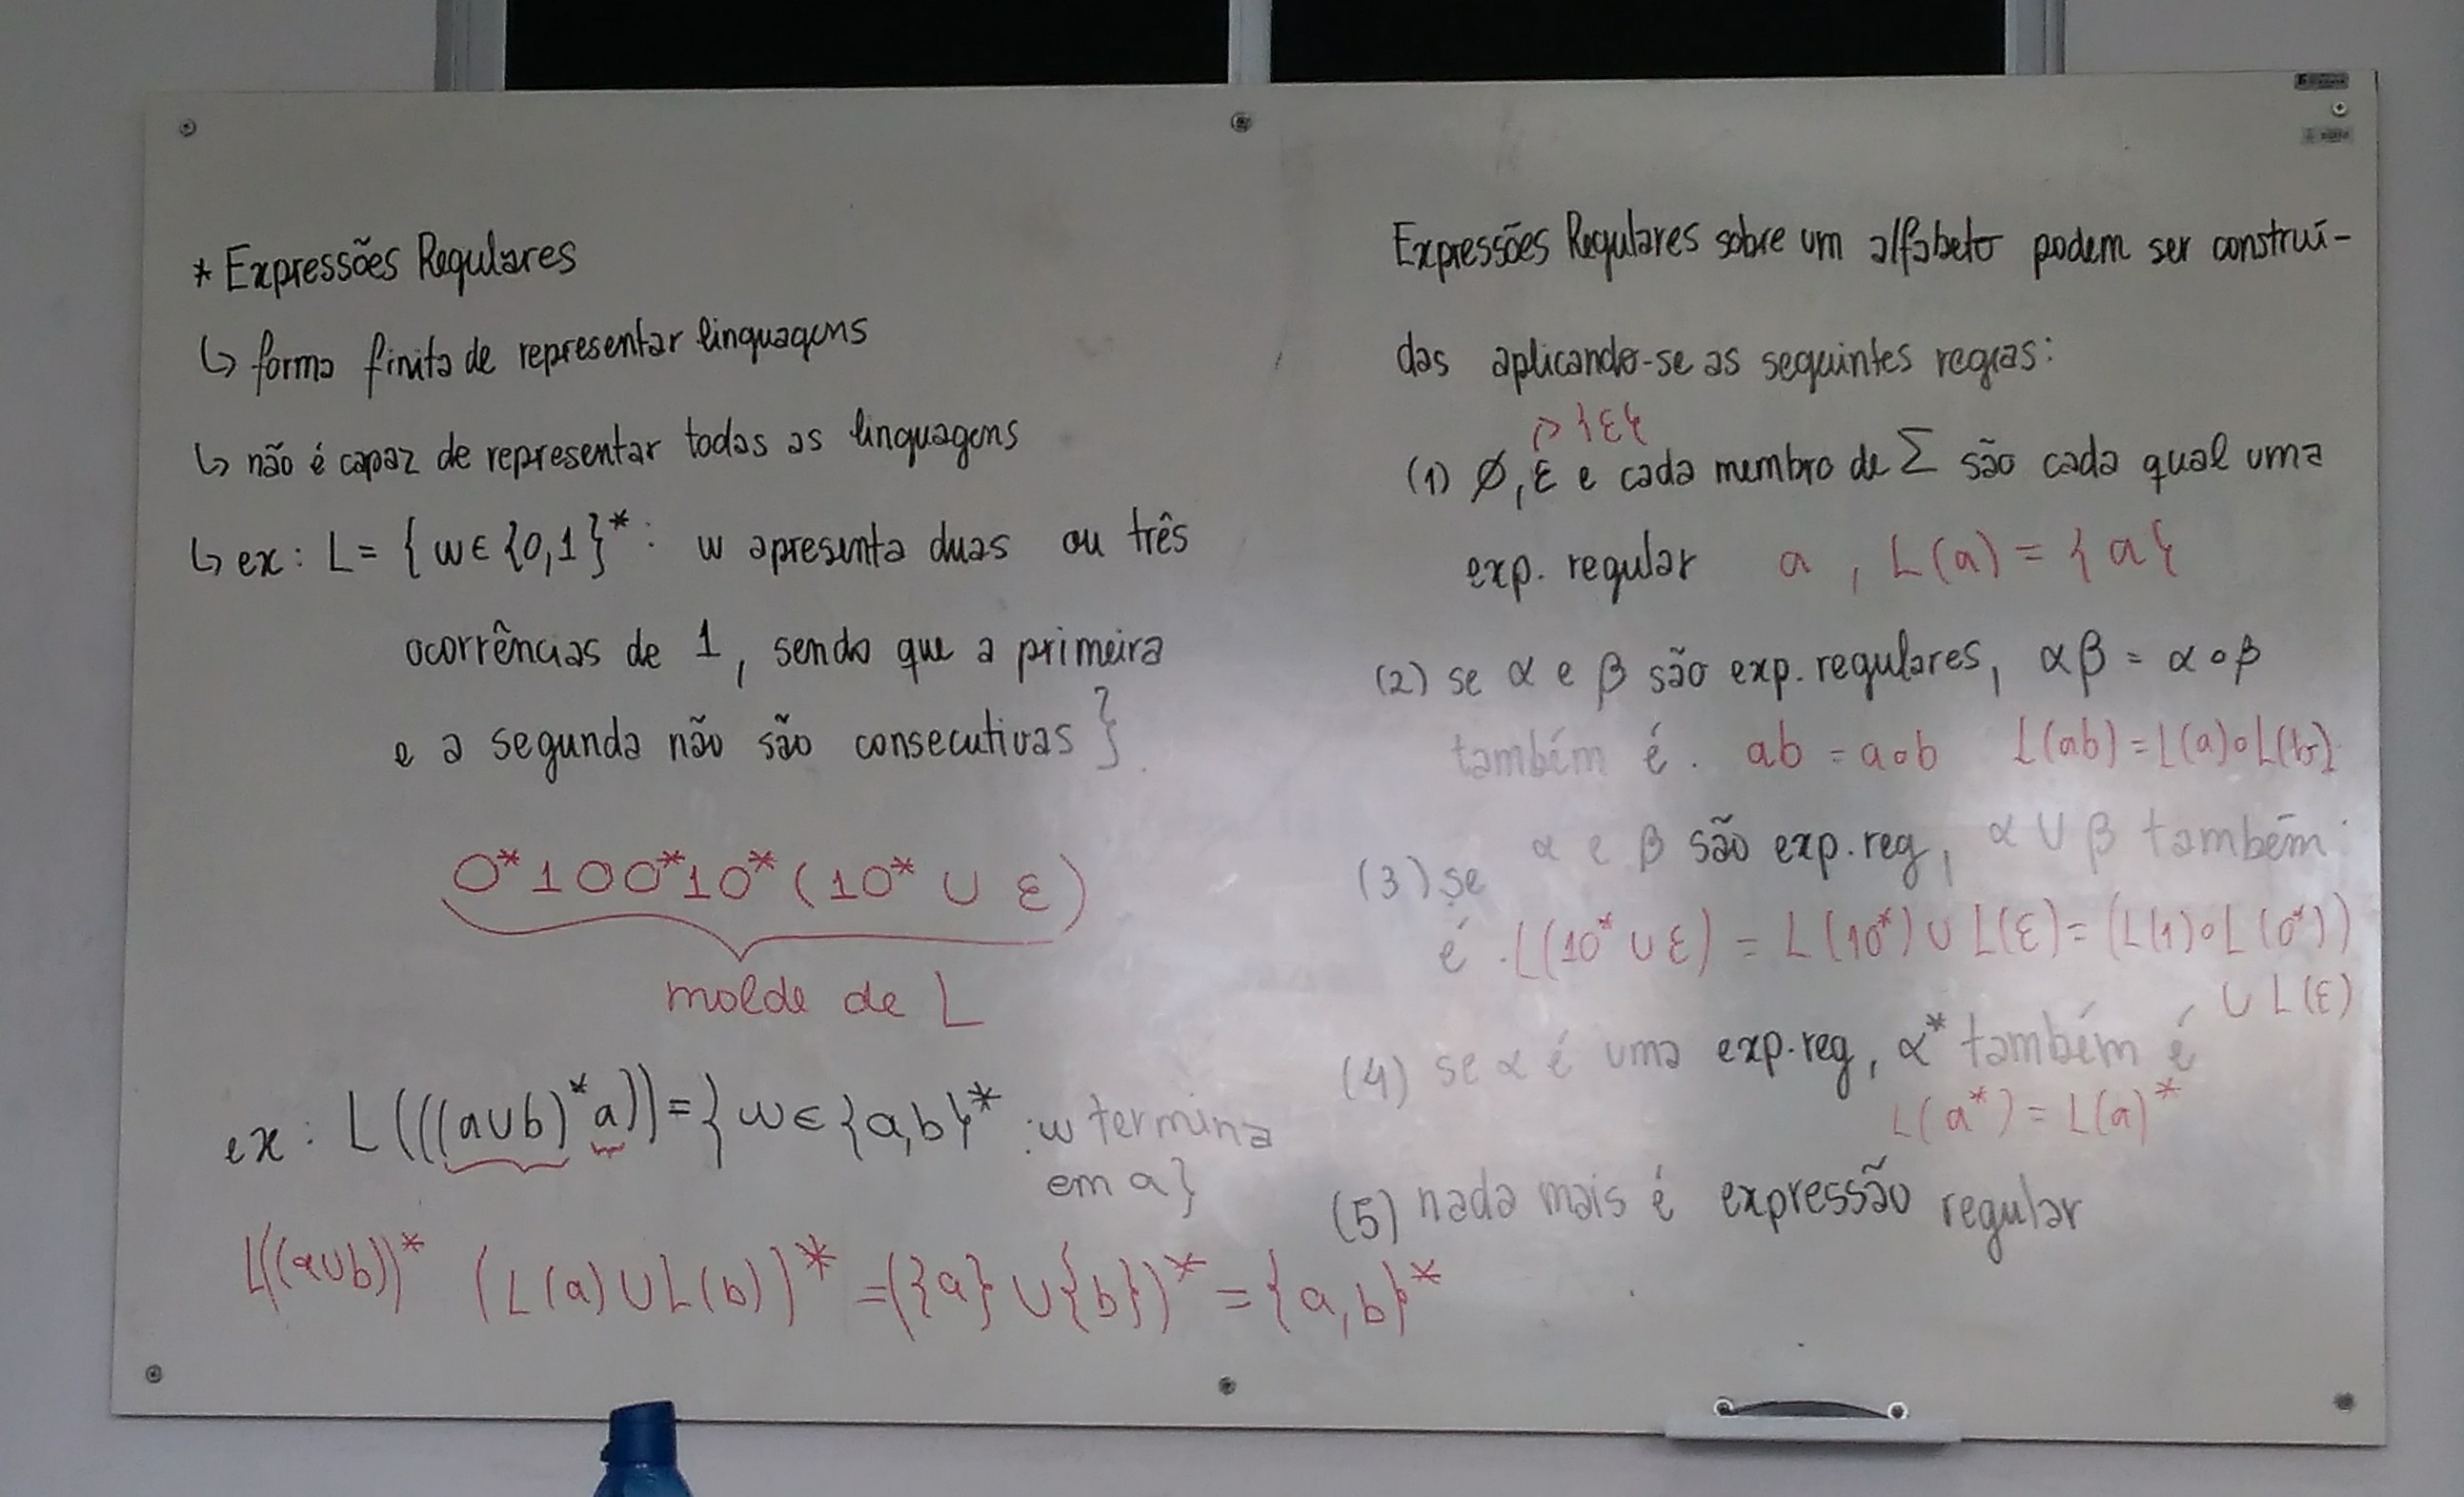 * Expressões Regulares
↳ forma finita de representar linguagens
↳ não é capaz de representar todas as linguagens
↳ ex: L = { w ∈ {0,1}* : w apresenta duas ou três
ocorrências de 1, sendo que a primeira
e a segunda não são consecutivas }
0*100*10*(10* ∪ ε)
molde de L
ex: L(((a∪b)*a)) = { w ∈ {a,b}* : w termina
em a}
L((a∪b))* (L(a) ∪ L(b))* = ({a} ∪ {b})* = {a,b}*
Expressões Regulares sobre um alfabeto podem ser construí-
das aplicando-se as seguintes regras:
{ε}
(1) ∅, ε e cada membro de Σ são cada qual uma
exp. regular a, L(a) = {a}
(2) se α e β são exp. regulares, αβ = α∘β
também é. ab = a∘b L(ab) = L(a)∘L(b)
(3) se α e β são exp.reg, α ∪ β também
é. L(10* ∪ ε) = L(10*) ∪ L(ε) = (L(1)∘L(0*))
∪ L(ε)
(4) se α é uma exp.reg, α* também é
L(a*) = L(a)*
(5) nada mais é expressão regular